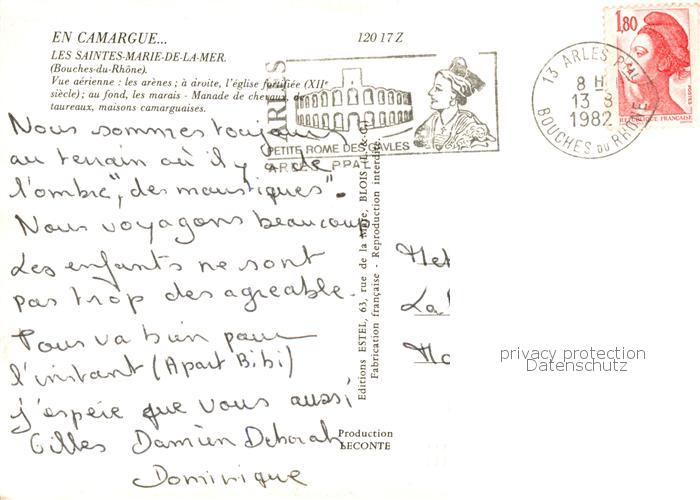 EN CAMARGUE...
120 17 Z
LES SAINTES-MARIE-DE-LA-MER.
(Bouches-du-Rhône).
Vue aérienne : les arènes ; à droite, l'église fortifiée (XIIe
siècle) ; au fond, les marais - Manade de chevaux, de
taureaux, maisons camarguaises.
ARLES
PETITE ROME DES GAVLES
ARLES PPAL
13 ARLES PPAL
8 H
13 8
1982
BOUCHES DU RHÔNE
1,80
POSTES
REPUBLIQUE FRANÇAISE
Nous sommes toujours
au terrain où il y a de
l'ombre, "des moustiques".
Nous voyageons beaucoup
Les enfants ne sont
pas trop desagreable.
Tous va bien pour
l'instant (Apart Bibi)
j'espère que vous aussi
Gilles Damien Deborah
Dominique
Editions ESTEL, 63, rue de la Mare, BLOIS (L.-&-C.)
Fabrication française - Reproduction interdite.
Production
LECONTE
privacy protection
Datenschutz